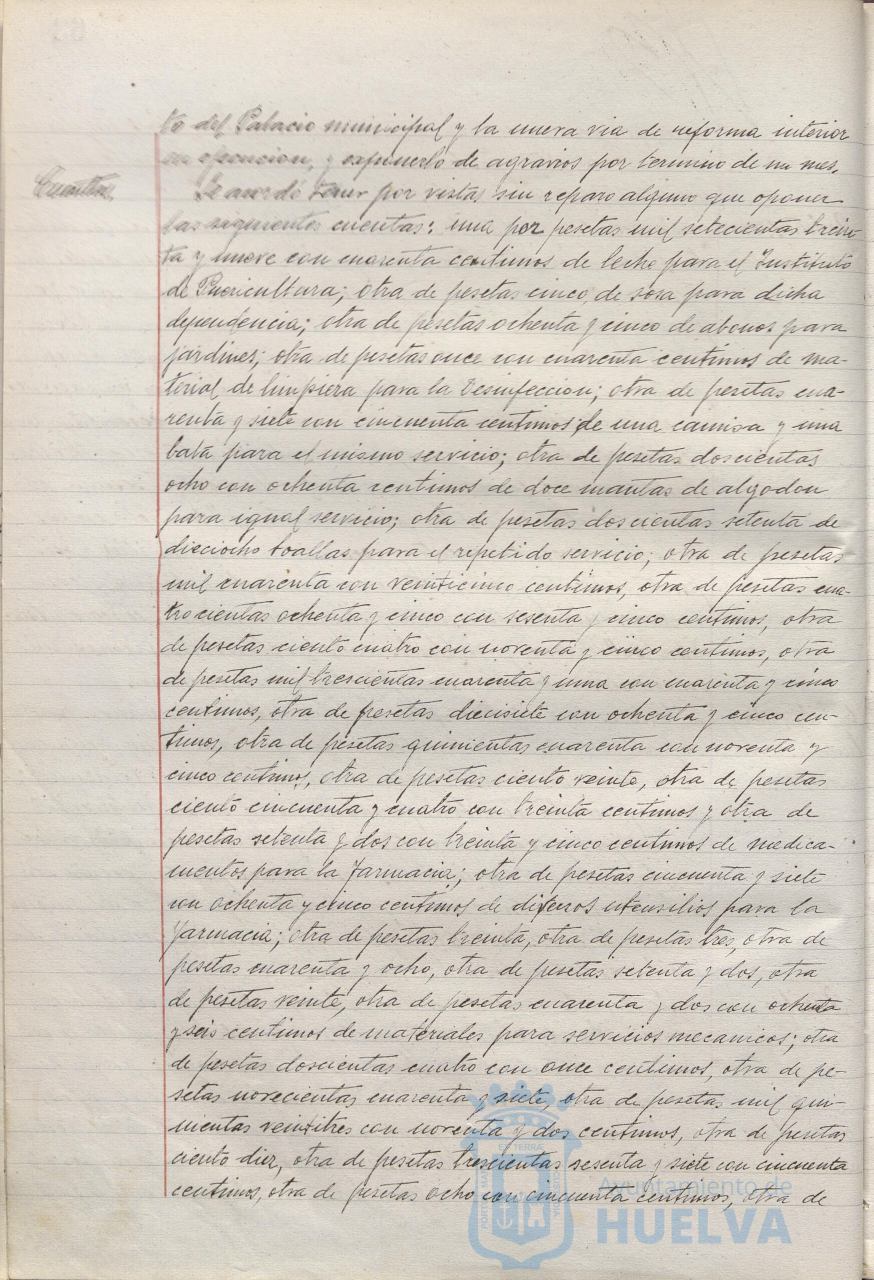 to del Palacio municipal y la nueva via de reforma interior
en oposicion, y exponerlo de agravios por termino de un mes.
Cuentas.
Se acordó tener por vistas sin reparo alguno que oponer
las siguientes cuentas: una por pesetas mil setecientas trein-
ta y nueve con cuarenta centimos de leche para el Instituto
de Puericultura; otra de pesetas cinco de sosa para dicha
dependencia; otra de pesetas ochenta y cinco de abonos para
jardines; otra de pesetas once con cuarenta centimos de ma-
terial de limpieza para la Desinfeccion; otra de pesetas cua-
renta y siete con cincuenta centimos de una camisa y una
bata para el mismo servicio; otra de pesetas doscientas
ocho con ochenta centimos de doce mantas de algodon
para igual servicio; otra de pesetas doscientas setenta de
dieciocho toallas para el repetido servicio; otra de pesetas
mil cuarenta con veinticinco centimos, otra de pesetas cua-
trocientas ochenta y cinco con sesenta y cinco centimos, otra
de pesetas ciento cuatro con noventa y cinco centimos, otra
de pesetas mil trescientas cuarenta y una con cuarenta y cinco
centimos, otra de pesetas diecisiete con ochenta y cinco cen-
timos, otra de pesetas quinientas cuarenta con noventa y
cinco centimos, otra de pesetas ciento veinte, otra de pesetas
ciento cincuenta y cuatro con treinta centimos y otra de
pesetas setenta y dos con treinta y cinco centimos de medica-
mentos para la Farmacia; otra de pesetas cincuenta y siete
con ochenta y cinco centimos de diversos utensilios para la
Farmacia; otra de pesetas treinta, otra de pesetas tres, otra de
pesetas cuarenta y ocho, otra de pesetas setenta y dos, otra
de pesetas veinte, otra de pesetas cuarenta y dos con ochenta
y seis centimos de materiales para servicios mecanicos; otra
de pesetas doscientas cuatro con once centimos, otra de pe-
setas novecientas cuarenta y siete, otra de pesetas mil qui-
nientas veintitres con noventa y dos centimos, otra de pesetas
ciento diez, otra de pesetas trescientas sesenta y siete con cincuenta
centimos, otra de pesetas ocho con cincuenta centimos, otra de
Ayuntamiento de
HUELVA